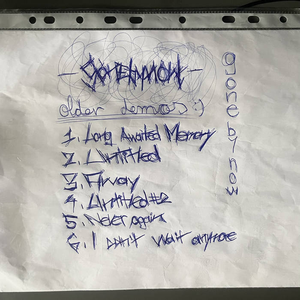 - Gonebynow -
older demos :)
1. Long Awaited Memory
2. Untitled
3. Away
4. Untitled #2
5. Never again
6. I don't wait anymore
gone by now